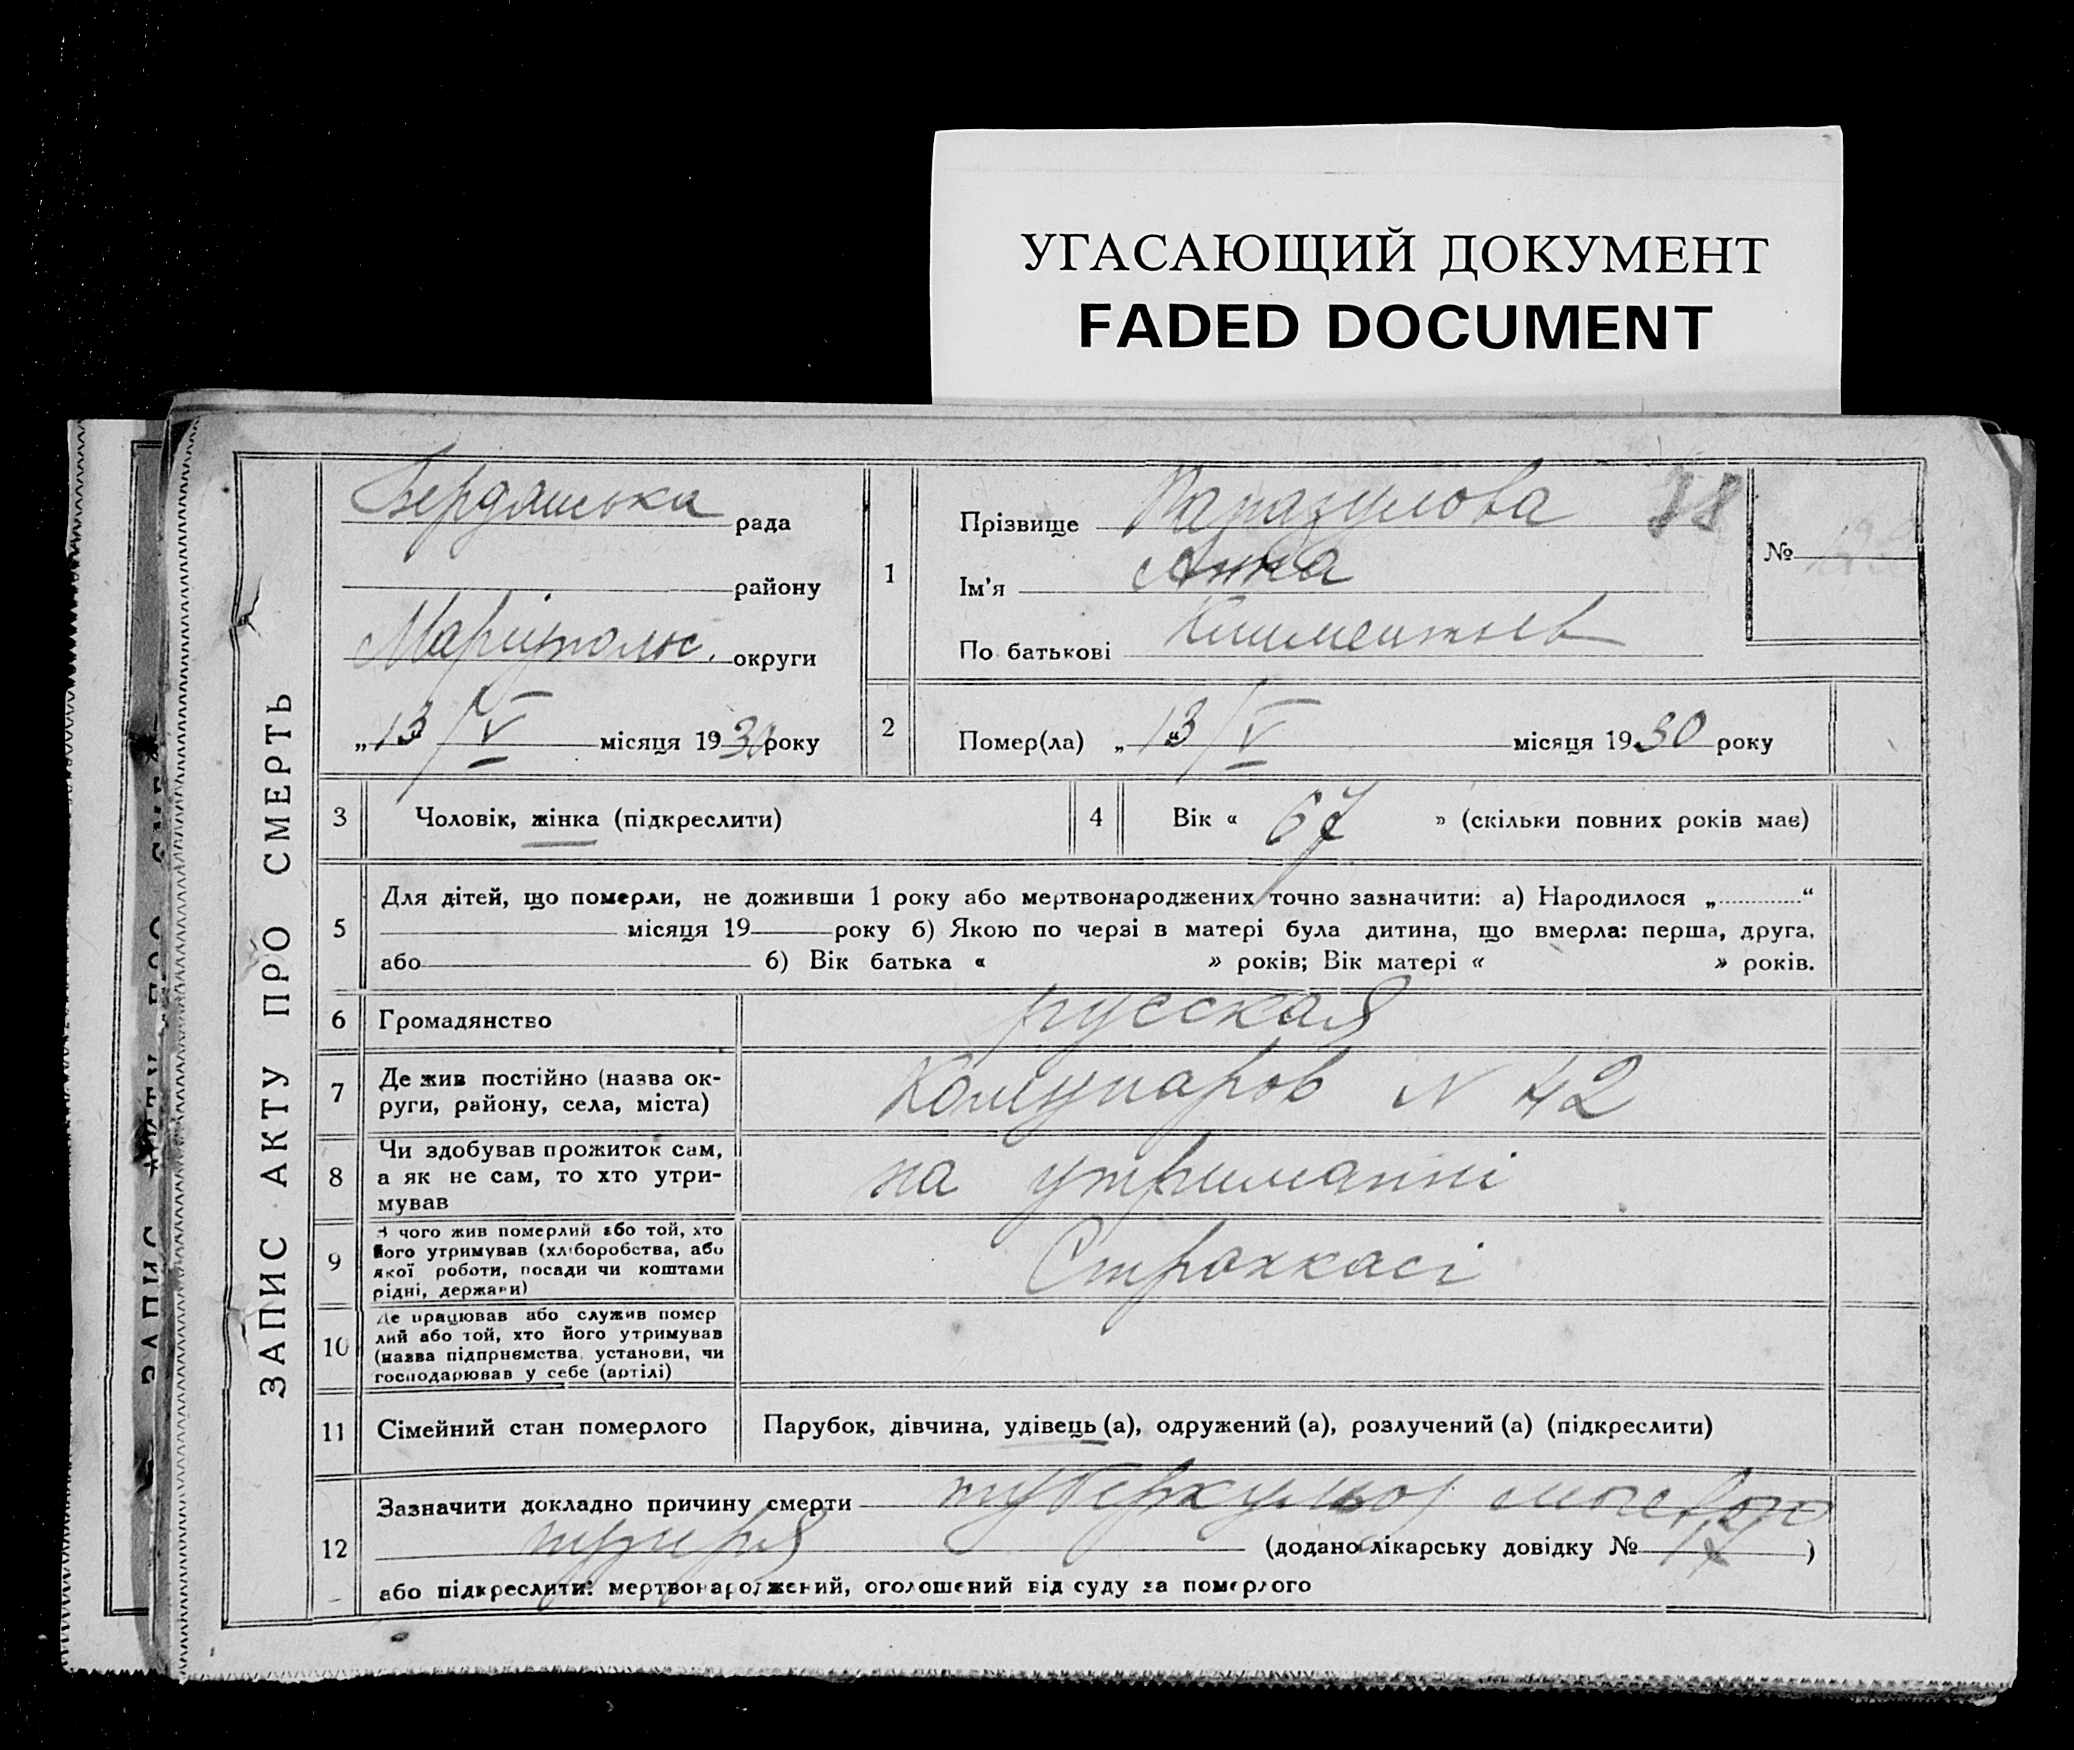 УГАСАЮЩИЙ ДОКУМЕНТ
FADED DOCUMENT
ЗАПИС АКТУ ПРО СМЕРТЬ
Бердянська рада
району
Маріупольс. округи
„13/V місяця 1930 року
1
Прізвище
Ім'я Анна
По батькові
№
2
Помер(ла) „13/V місяця 1930 року
3 Чоловік, жінка (підкреслити)
4 Вік « 67 » (скільки повних років має)
5 Для дітей, що померли, не доживши 1 року або мертвонароджених точно зазначити: а) Народилося „ “
місяця 19 року б) Якою по черзі в матері була дитина, що вмерла: перша, друга,
або б) Вік батька « » років; Вік матері « » років.
6 Громадянство русская
7 Де жив постійно (назва ок-
руги, району, села, міста) Комунаров N 42
8 Чи здобував прожиток сам,
а як не сам, то хто утри-
мував на утриманні
9 З чого жив померлий або той, хто
його утримував (хліборобства, або
якої роботи, посади чи коштами
рідні, держави) Страхкасі
10 Де працював або служив помер
лий або той, хто його утримував
(назва підприємства, установи, чи
господарював у себе (артілі)
11 Сімейний стан померлого Парубок, дівчина, удівець (а), одружений (а), розлучений (а) (підкреслити)
12 Зазначити докладно причину смерти туберкульоз
пузиря (додано лікарську довідку № )
або підкреслити: мертвонароджений, оголошений від суду за померлого